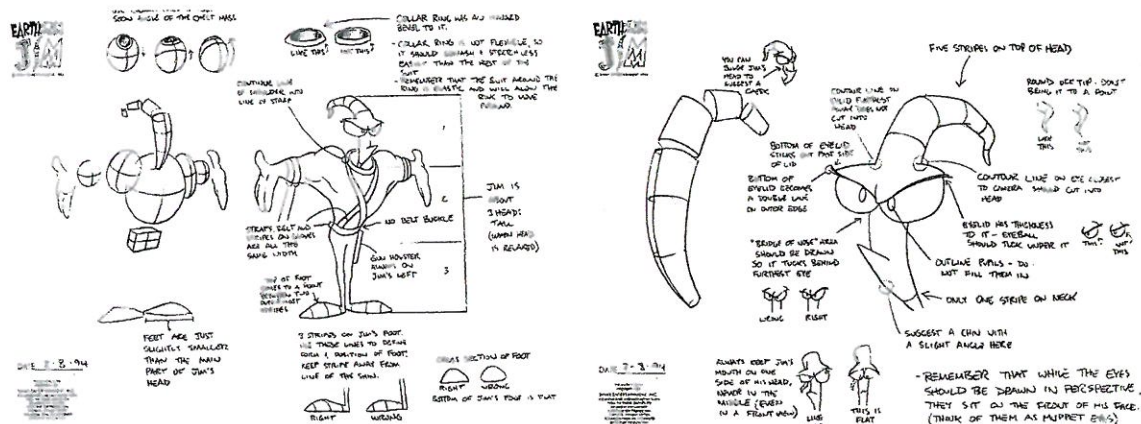 EARTH
JIM
COLLAR RING HAS AN
BEVEL TO IT.
LIKE THIS!
NOT THIS!
- COLLAR RING IS NOT FLEXIBLE, SO
IT SHOULD SQUASH & STRETCH LESS
EASILY THAN THE REST OF THE
SUIT
- REMEMBER THAT THE SUIT AROUND THE
RING IS ELASTIC AND WILL ALLOW THE
RING TO MOVE
AROUND.
CONTINUE LINE
OF SHOULDER INTO
LINE OF STRAP
1
2
3
JIM IS
ABOUT
3 HEADS
TALL
(WHEN HEAD
IS RELAXED)
NO BELT BUCKLE
STRAPS, BELT AND
STRIPES ON GLOVES
ARE ALL THE
SAME WIDTH
GUN HOLSTER
ALWAYS ON
JIM'S LEFT
TOP OF FOOT
COMES TO A POINT
BETWEEN TWO
STRIPES
FEET ARE JUST
SLIGHTLY SMALLER
THAN THE MAIN
PART OF JIM'S
HEAD
3 STRIPES ON JIM'S FOOT.
USE THESE LINES TO DEFINE
FORM & POSITION OF FOOT.
KEEP STRIPE AWAY FROM
LINE OF THE SHIN.
RIGHT
WRONG
CROSS SECTION OF FOOT
RIGHT
WRONG
BOTTOM OF JIM'S FOOT IS FLAT
DATE
EARTH
JIM
YOU CAN
JIM'S
HEAD TO
SUGGEST A
FIVE STRIPES ON TOP OF HEAD
ROUND OFF TIP - DON'T
BRING IT TO A POINT
LIKE
THIS
NOT
THIS
CONTOUR LINE ON
EYELID FURTHEST
AWAY DOES NOT
CUT INTO
HEAD
BOTTOM OF EYELID
STICKS OUT PAST SIDE
OF LID
BOTTOM OF
EYELID BECOMES
A DOUBLE LINE
ON OUTER EDGE
CONTOUR LINE ON EYE CLOSEST
TO CAMERA SHOULD CUT INTO
HEAD
EYELID HAS THICKNESS
TO IT - EYEBALL
SHOULD TUCK UNDER IT
THIS!
NOT
THIS
"BRIDGE OF NOSE" AREA
SHOULD BE DRAWN
SO IT TUCKS BEHIND
FURTHEST EYE
WRONG
RIGHT
OUTLINE PUPILS - DO
NOT FILL THEM IN
ONLY ONE STRIPE ON NECK
SUGGEST A CHIN WITH
A SLIGHT ANGLE HERE
ALWAYS KEEP JIM'S
MOUTH ON ONE
SIDE OF HIS HEAD,
NEVER IN THE
MIDDLE (EVEN
IN A FRONT VIEW)
LIKE
THIS IS
FLAT
- REMEMBER THAT WHILE THE EYES
SHOULD BE DRAWN IN PERSPECTIVE,
THEY SIT ON THE FRONT OF HIS FACE.
(THINK OF THEM AS MUPPET EYES)
DATE